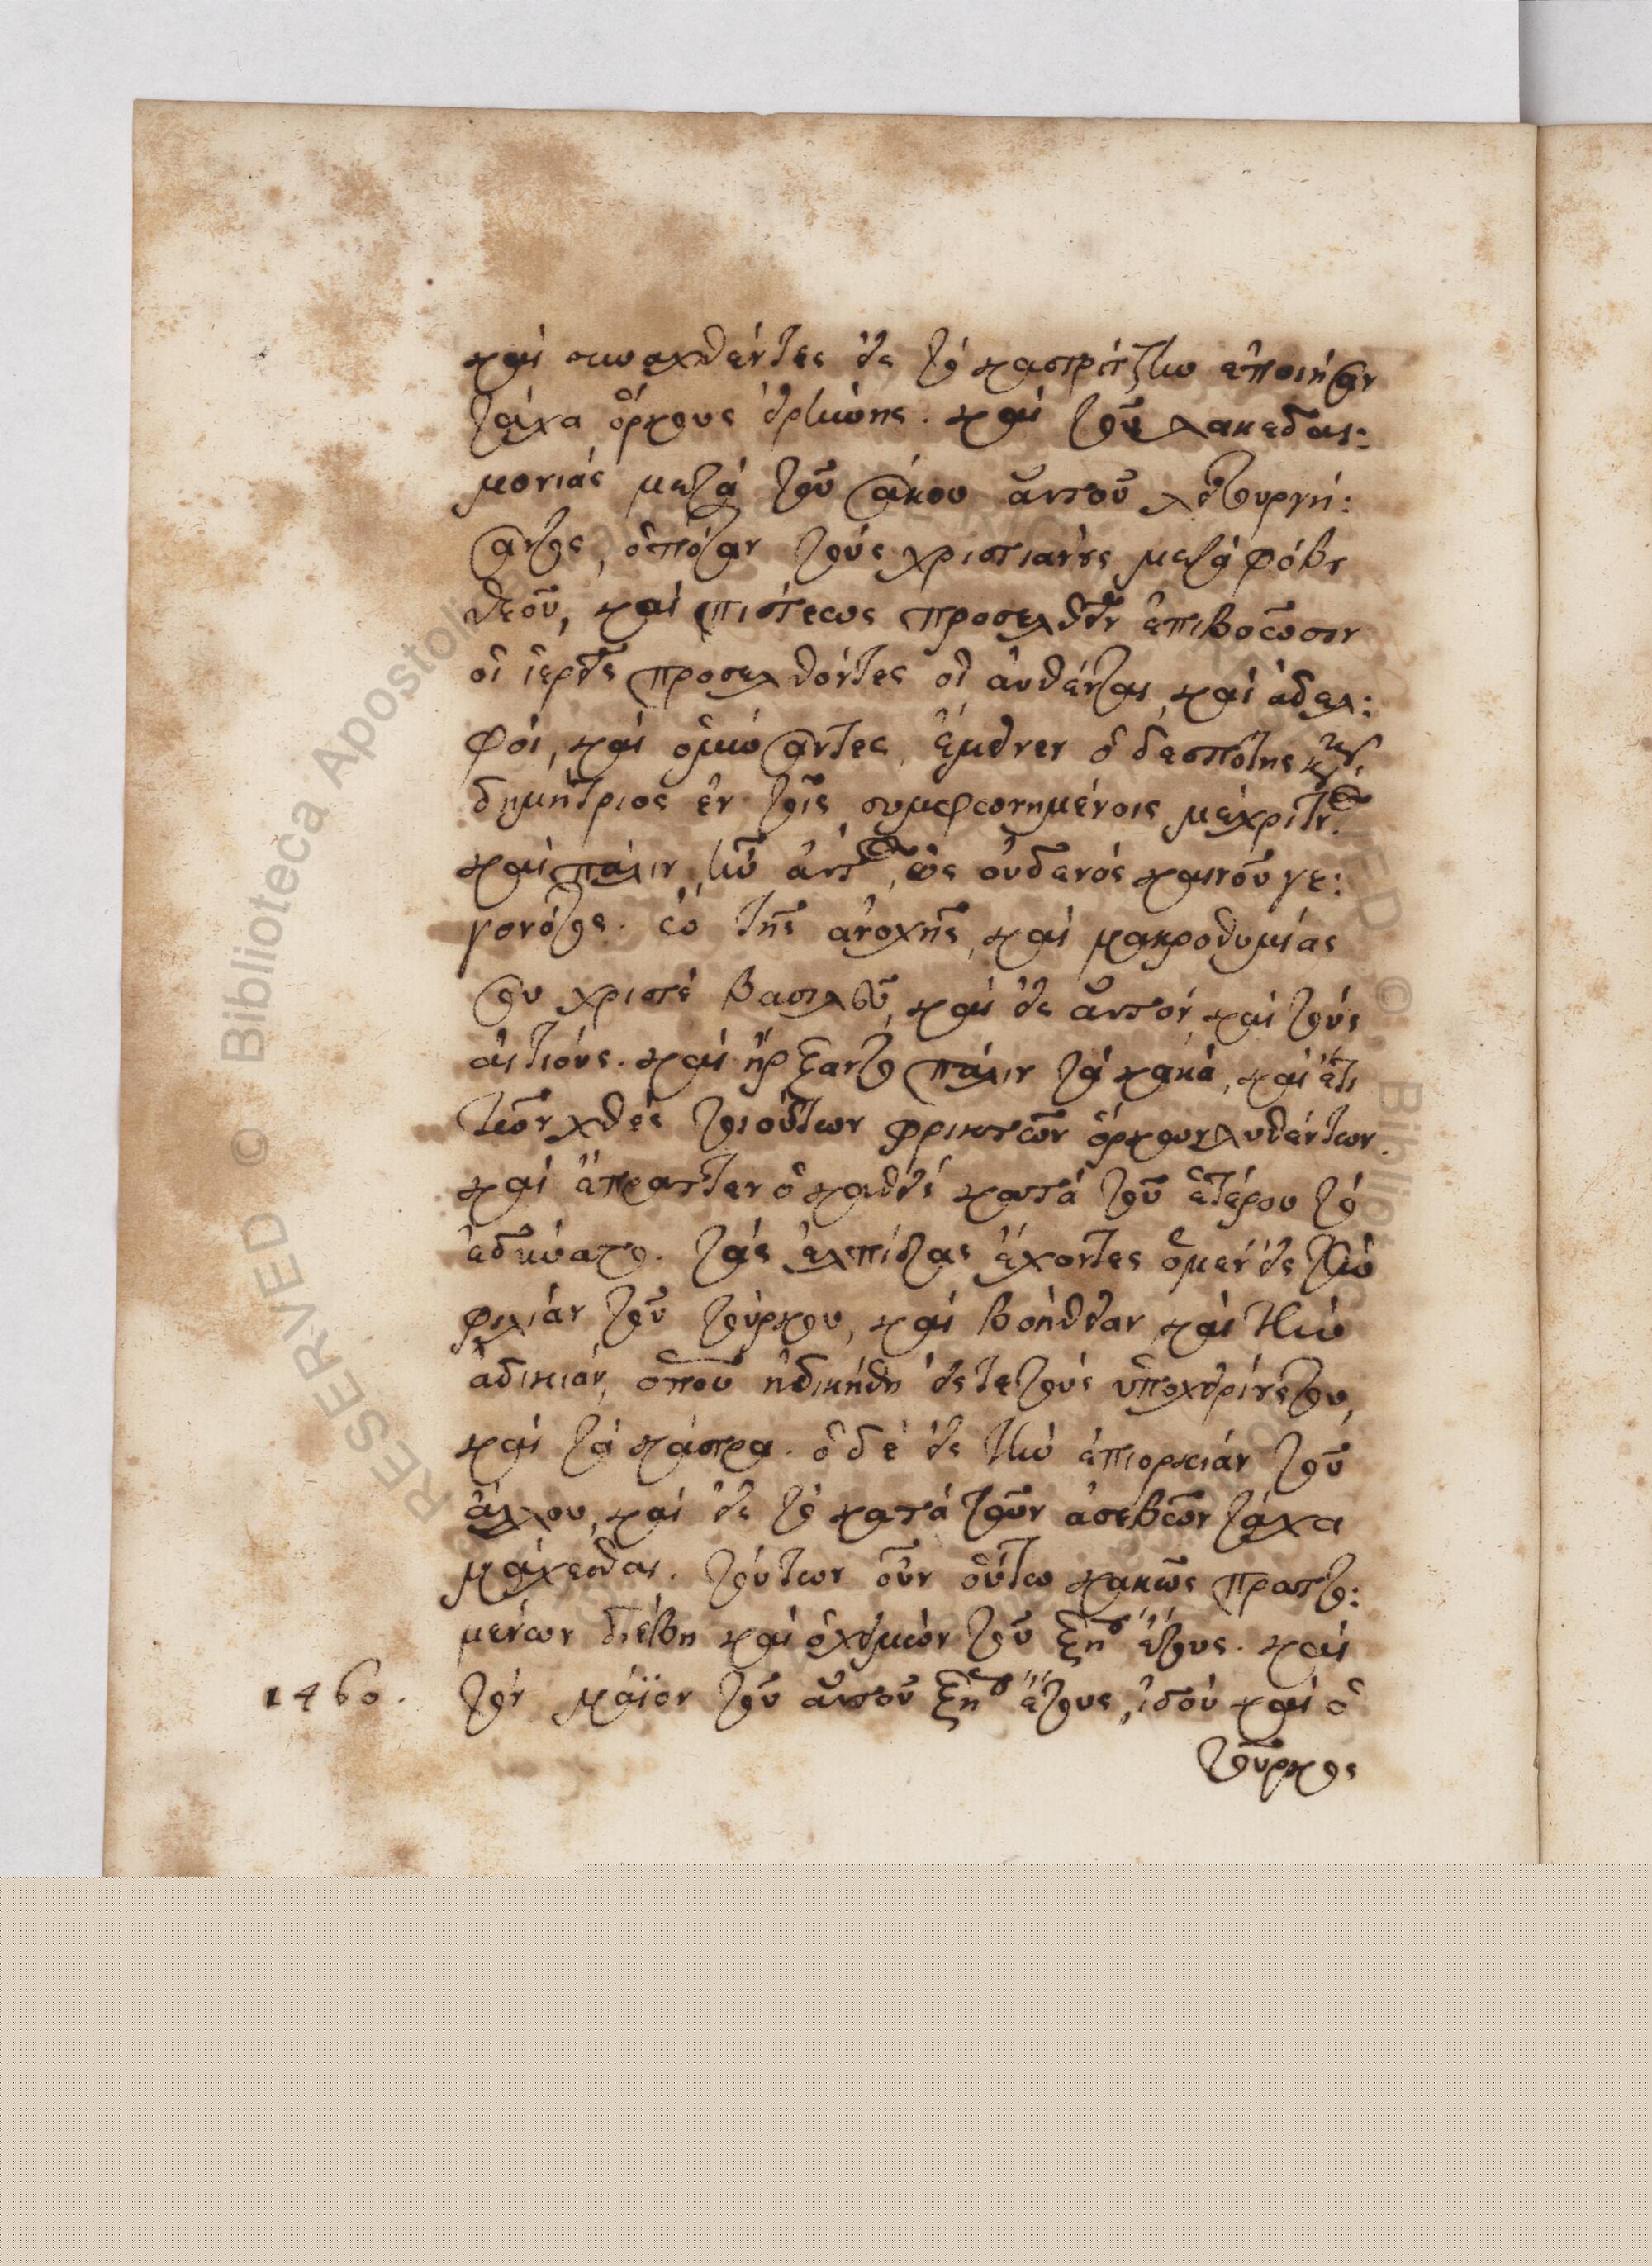 καὶ συναχθέντες εἰς τὸ καστρίτζιν ἐποιήσαν
τάχα ὅρκους εἰρήνης. καὶ τοῦ λακεδαι:
μονιάς μετὰ τοῦ σάκου αὐτοῦ λειτουργή:
σαντος, ὁπόταν τοὺς χριστιανοὺς μετὰ φόβου
θεοῦ, καὶ πίστεως προσελθεῖν ἐπιβοῶσιν
οἱ ἱερεῖς προσελθόντες οἱ αὐθένται καὶ ἀδελ:
φοί, καὶ ὁμώσαντες, ἔμεινεν ὁ δεσπότης κὺρ
δημήτριος ἐν τοῖς συμφωνημένοις μέχρι τινός.
καὶ πάλιν ἦν αὐτός, ὡς οὐδενὸς καινοῦ γε:
γονότος. ὢ τῆς ἀνοχῆς καὶ μακροθυμίας
σου χριστὲ βασιλεῦ, καὶ εἰς αὐτόν καὶ τοὺς
αἰτιούς. καὶ ἤρξαντο πάλιν τὰ κακά, καὶ ἔτι
τῶν χθὲς τοιούτων φρικτῶν ὅρκων λυθέντων.
καὶ ἔπραττεν ὁ καθεὶς κατὰ τοῦ ἑτέρου τὸ
ἐδύνατο. τὰς ἐλπίδας ἔχοντες ὁ μὲν εἰς τὴν
φιλίαν τοῦ τούρκου, καὶ βοήθειαν καὶ τὴν
ἀδικιάν, ὁποῦ ἠδικήθη εἴς τε τοὺς ὑποχειρίους του,
καὶ τὰ κάστρα. ὁ δὲ εἰς τὴν ἐπιορκιάν τοῦ
ἄλλου, καὶ εἰς τὸ κατὰ τῶν ἀσεβῶν τάχα
μάχεσθαι. τούτων οὖν οὕτω κακῶς πραττο:
μένων διέβη καὶ ὁ χειμὼν τοῦ ξηου ἔτους. καὶ
1460. τὸν μάϊον τοῦ αὐτοῦ ξηου ἔτους, ἰδοὺ καὶ ὁ
τοῦρκος